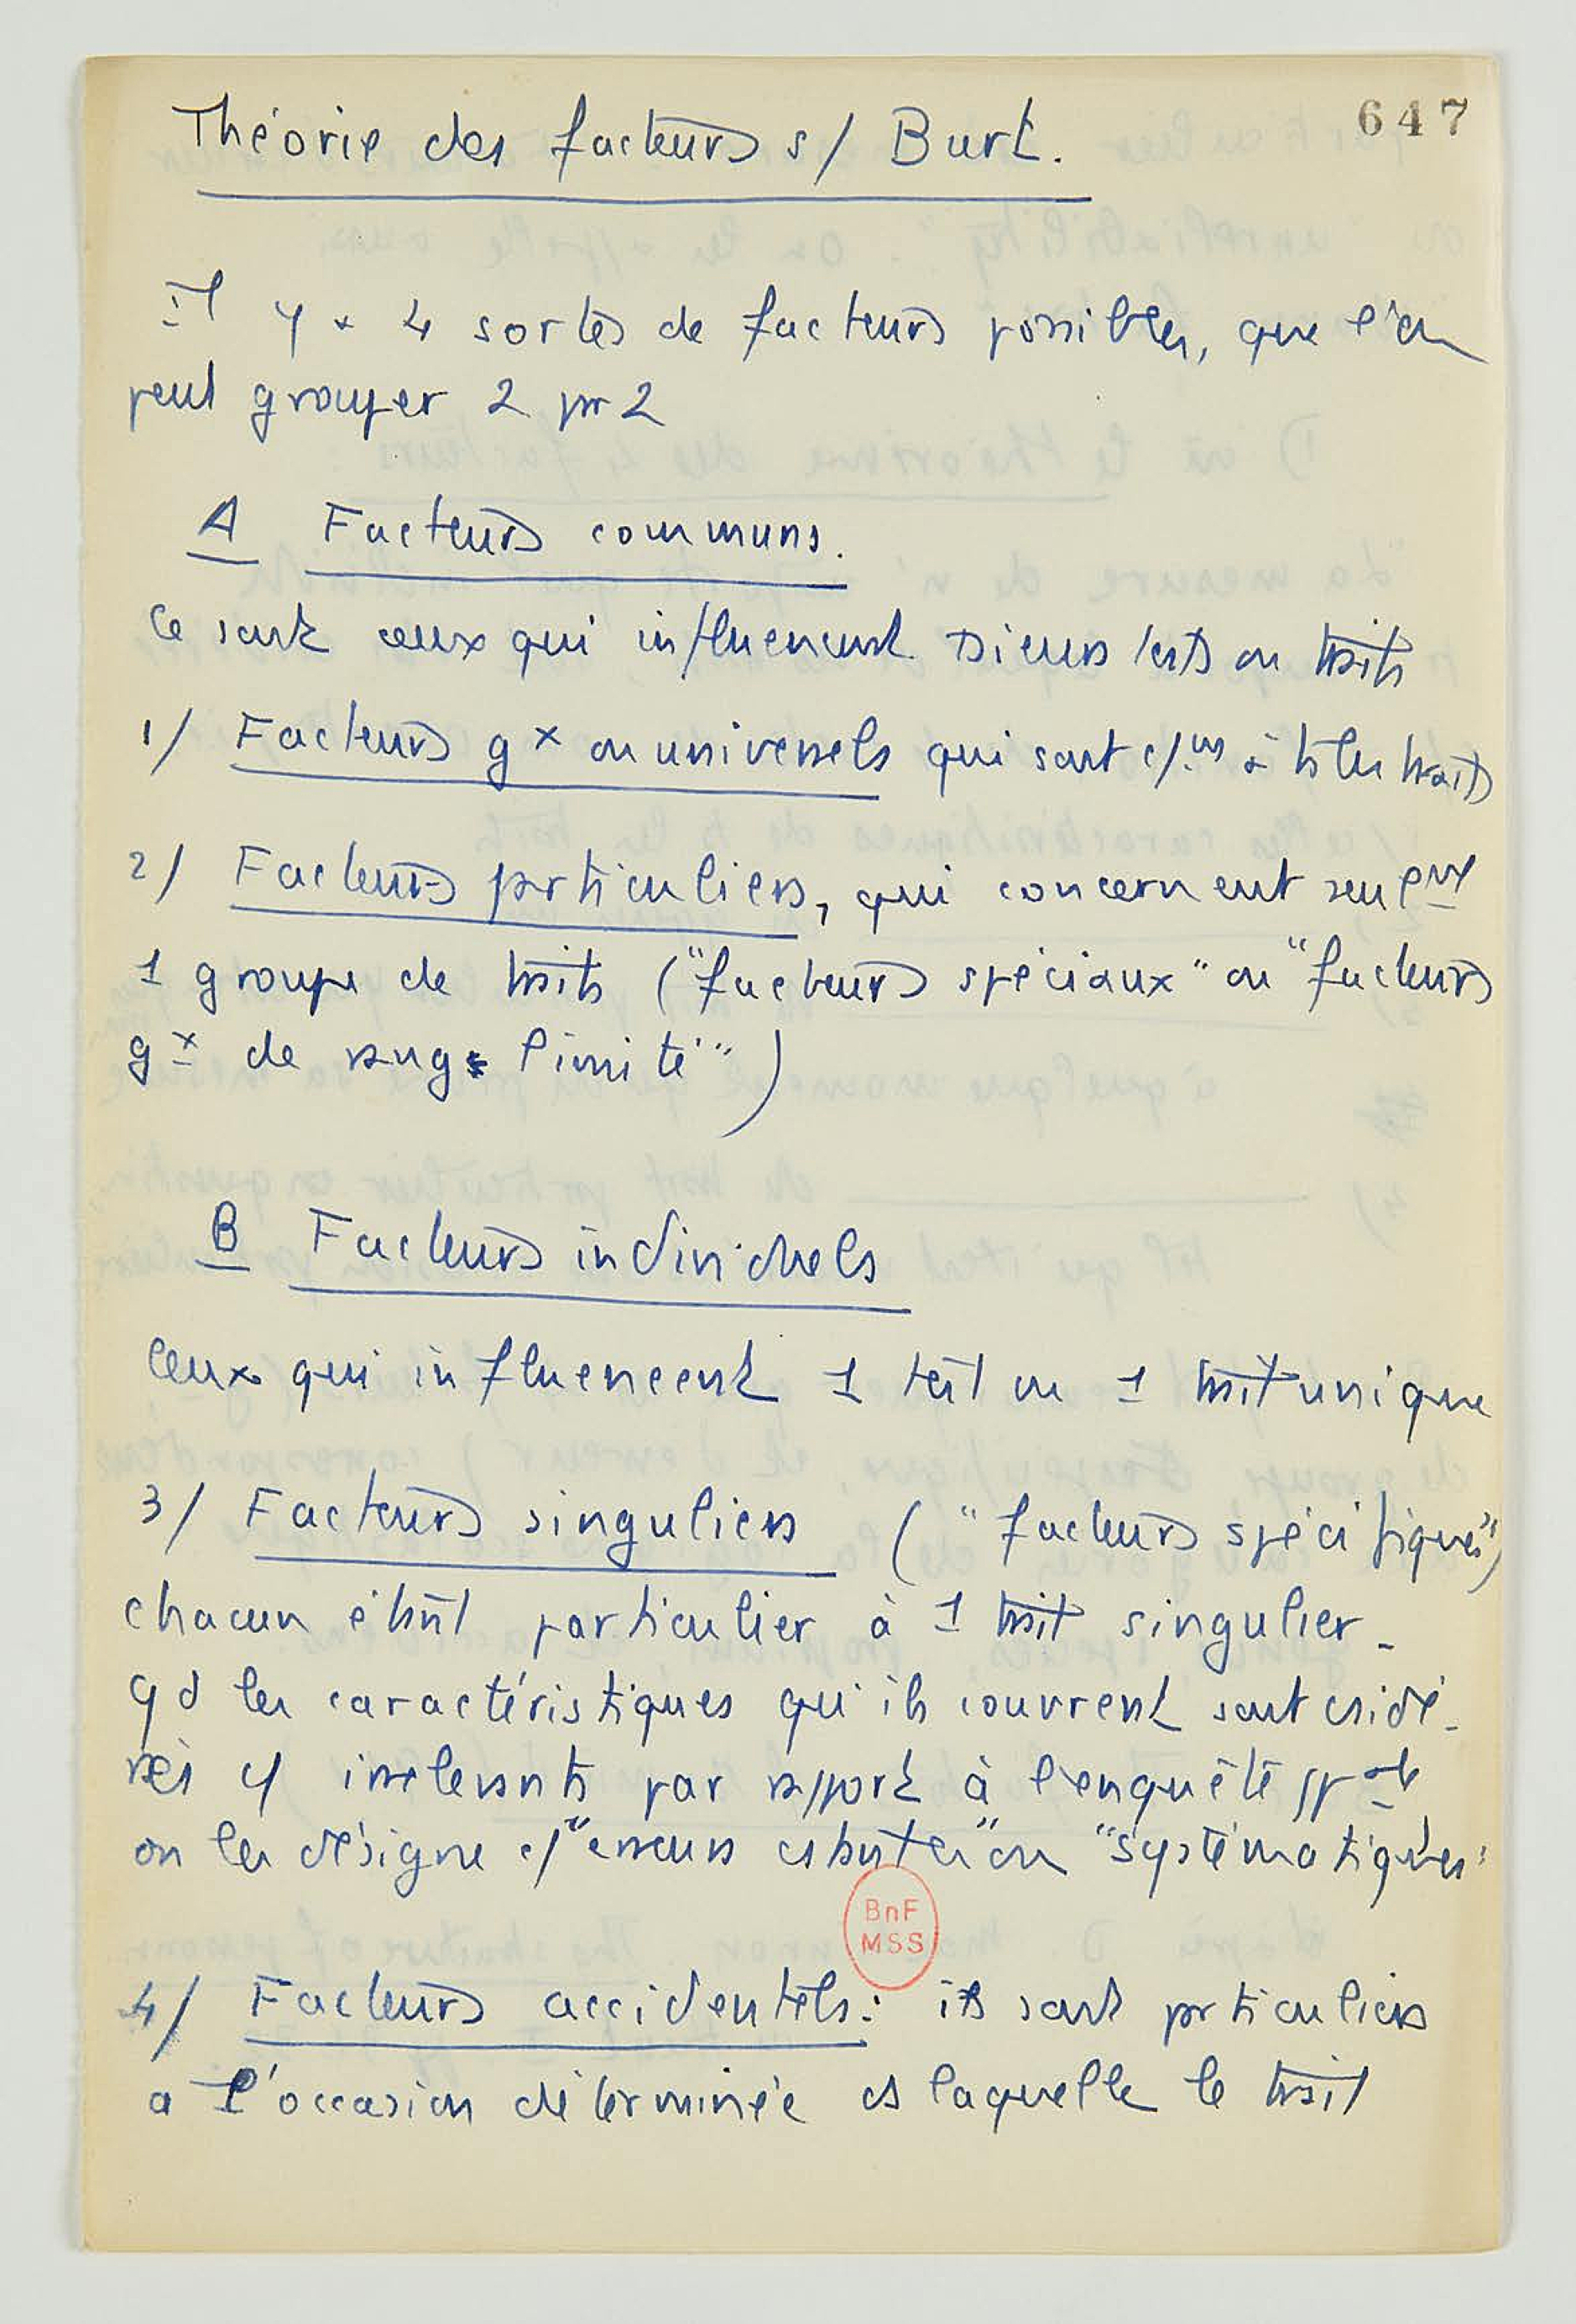 647
Théorie des facteurs s/ Burt.
il y a 4 sortes de facteurs possibles, que l'on
peut grouper 2 pr 2
A Facteurs communs.
Ce sont ceux qui influencent psieurs tests ou traits
1/ Facteurs gx ou universels qui sont c/.uns à ts les traits
2/ Facteurs prticuliers, qui concernent seulemt
1 groupe de traits ("facteurs spéciaux" ou "facteurs
gx de rang limité")
B Facteurs individuels
Ceux qui influencent 1 test ou 1 trait unique
3/ Facteurs singuliers ("facteurs spécifiques")
chacun étant particulier à 1 trait singulier -
qd les caractéristiques qu'ils couvrent sont csidé-
rés c/ irrelevants par rapport à l'enquête
on les désigne c/ "erreurs cstantes" ou "systématiques"
BnF
MSS
4/ Facteurs accidentels : ils sont prticuliers
a l'occasion déterminée ds laquelle le trait